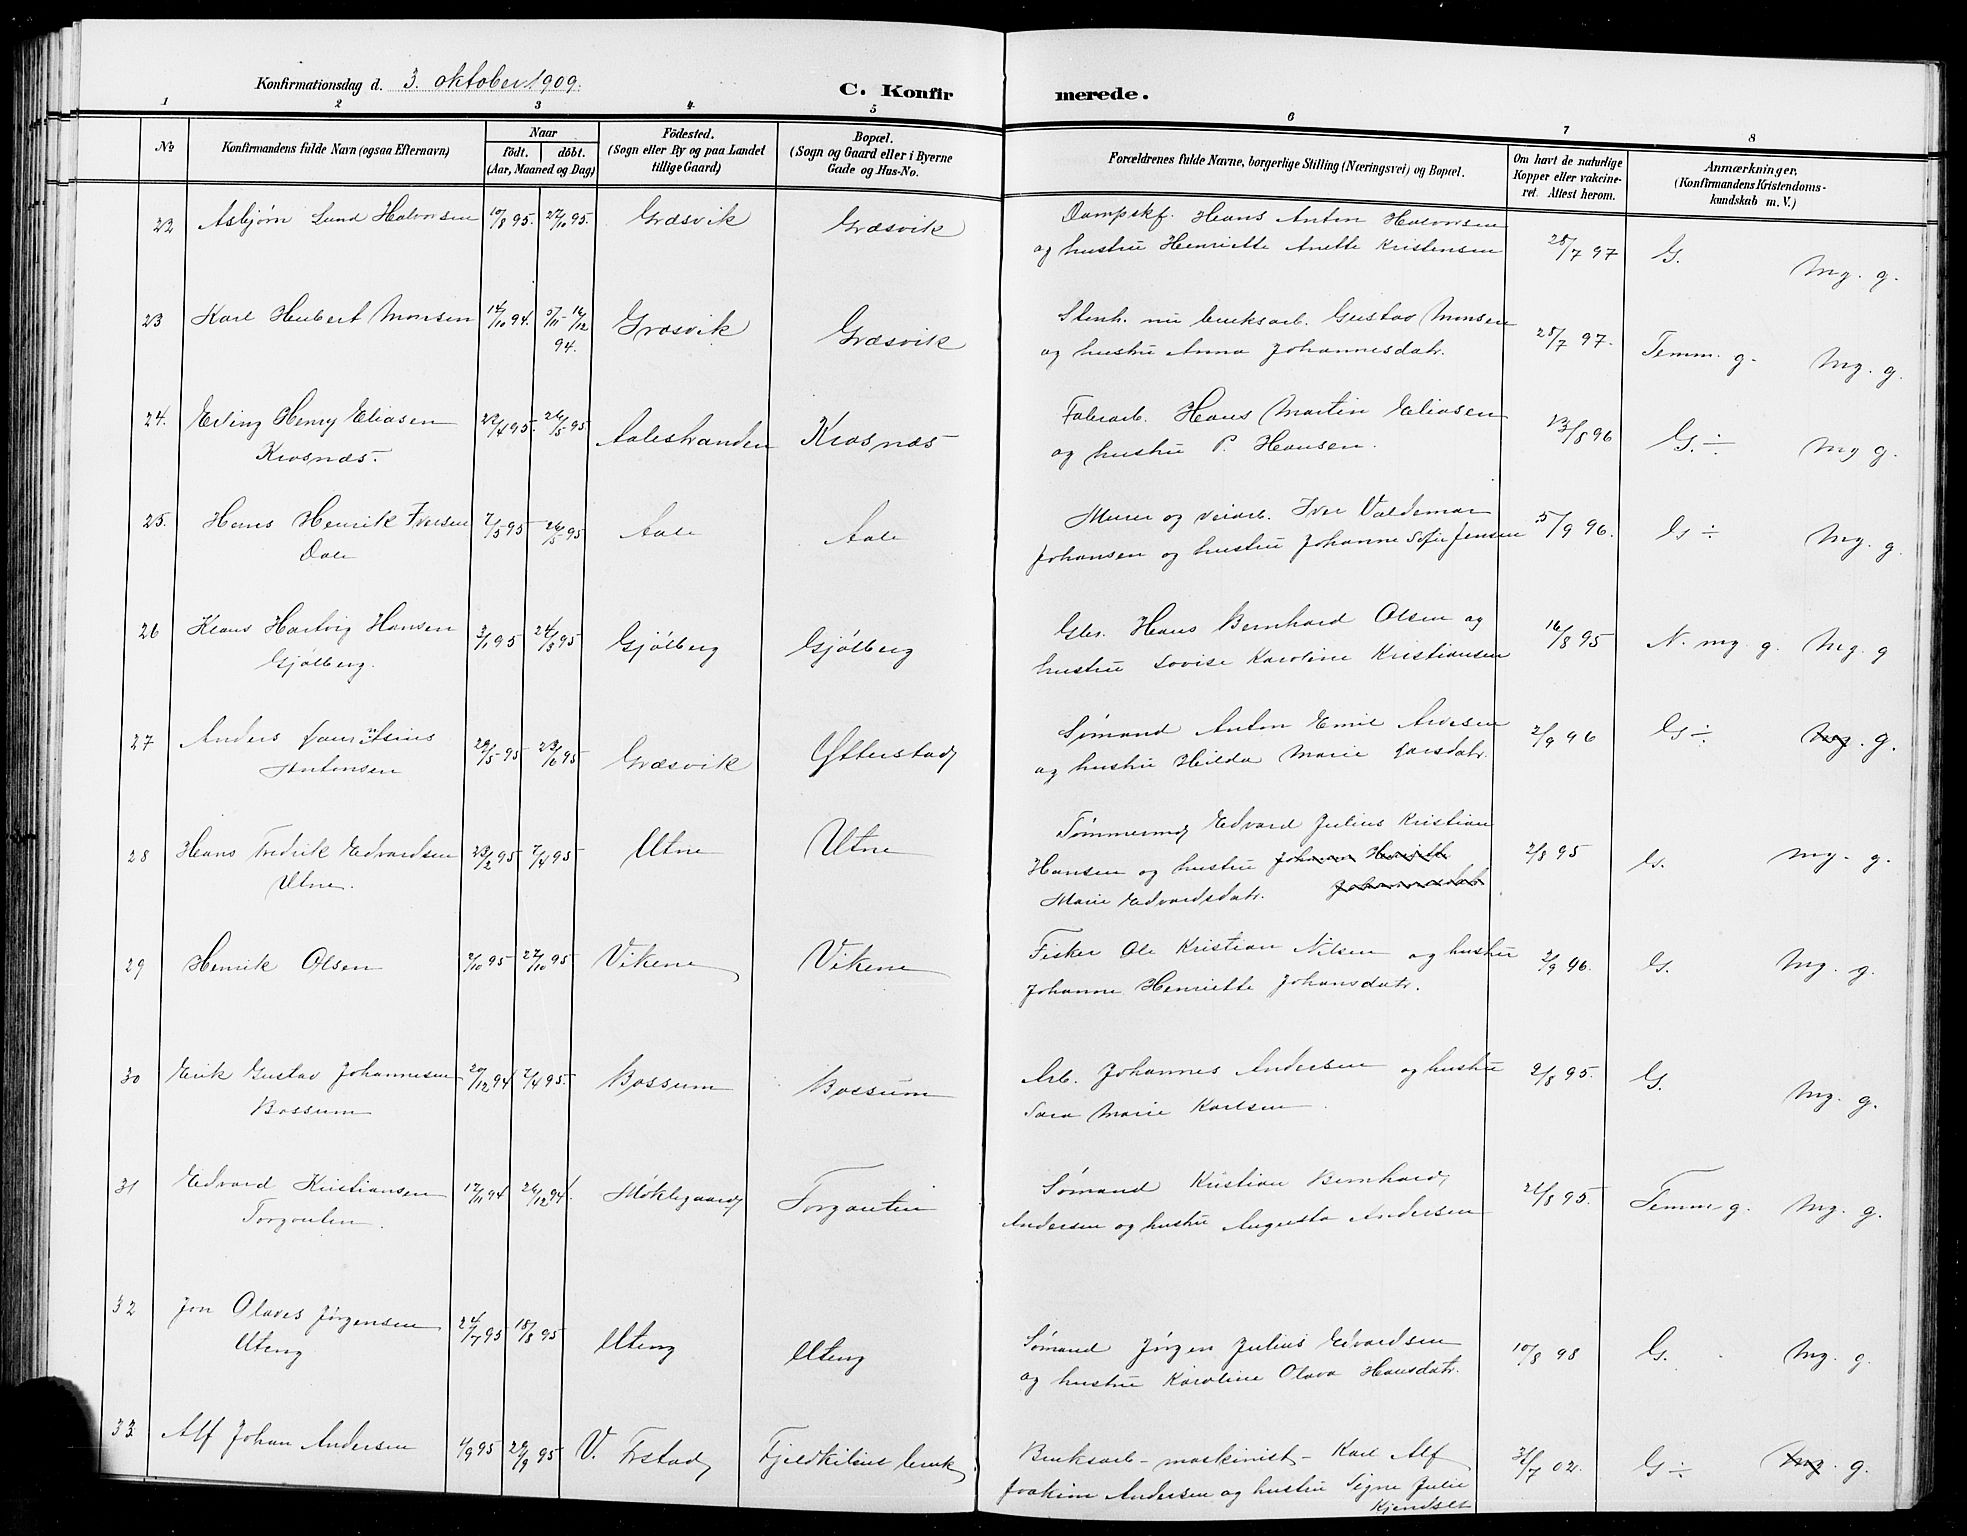 Konfirmationsdag d. 3. oktober 1909.
C. Konfir merede.
1 2 3 4. 5 6 7 8
No
Konfirmandens fulde Navn (ogsaa Efternavn)
Naar
födt. döbt.
(Aar, Maaned og Dag)
Födested.
(Sogn eller By og paa Landet
tillige Gaard)
Bopæl.
(Sogn og Gaard eller i Byerne
Gade og Hus-No.
Forældrenes fulde Navne, borgerlige Stilling (Næringsvei) og Bopæl.
Om havt de naturlige
Kopper eller vakcine-
ret. Attest herom.
Anmærkninger,
(Konfirmandens Kristendoms-
kundskab m. V.)
22 Asbjørn Lund Halvorsen 10/8 95. 27/10 95. Græsvik Græsvik Dampskf. Hans Anton Halvorsen
og hustru Henriette Anette Kristensen 28/7 97 G. Mg. g.
23 Karl Herbert Monsen 14/10 94. 5/11 - 16/12 Græsvik Græsvik Stenh. nu bruksarb. Gustav Monsen
94. og hustru Anna Johannesdatr. 28/7 97. Temm. g. Mg. g.
24. Erling Henry Eliasen 22/4 95. 26/5 95 Aalestranden Krosnæs Faberarb. Hans Martin Eliasen
Krosnæs. og hustru P. Hansen. 13/8 96 G. ÷ Mg g.
25. Hans Henrik Iversen 7/5 95 26/5 95 Aale Aale Murer og veiarb. Iver Valdemar
Dale Johansen og hustru Johanne Sofie Jensen 5/9 96. G ÷ Mg. g.
26 Klaus Hartvig Hansen 3/1 95 24/3 95 Gjølberg Gjølberg Gbr. Hans Bernhard Olsen og
Gjølberg. hustru Lovise Karoline Kristiansen 16/8 95 N. mg. g. Mg. g
27 Anders Lauritsius 29/5 95 23/6 95 Græsvik Ytterstad Sømand Anton Emil Andesen
Antonsen og hustru Hilda Marie Larsdatr. 2/9 96 G ÷ Mg. g.
28 Hans Fredrik Edvardsen 23/2 95 7/4 95 Utne Utne Tømmermd Edvard Julius Kristian
Utne. Hansen og hustru Johanne Henriette 2/8 95 G. Mg. g.
Marie Edvardsdatr. Johannesdatr
29 Henrik Olsen 2/10 95 27/10 95 Vikene Vikene Fisker Ole Kristian Nilsen og hustru
Johanne Henriette Johansdatr. 2/9 96. G. Mg. g.
30 Erik Gustav Johannesen 20/12 94 7/4 95. Bossum Bossum Arb. Johannes Andersen og hustru
Bossum Sara Marie Karlsen. 2/8 95. G. Mg. g.
31 Edvard Kristiansen 17/11 94 26/12 94. Møklegaard Torgauten Sømand Kristian Bernhard
Torgauten. Andersen og hustru Augusta Andersen 21/8 95. Temm g. Mg. g.
32 Jon Olaves Jørgensen 24/7 95 18/8 95 Uteng Uteng Sømand Jørgen Julius Edvardsen
Uteng og hustru Karoline Olava Hansdatr. 10/8 98 G. Mg. g.
33 Alf Johan Andersen 1/9 95 29/9 95 V. Frstad Fjeldkilens bruk Bruksarb - maskinist - Karl Alf
Joakim Andersen og hustru Signe Julie 31/7 02. G ÷ Mg. g.
Kjendslet